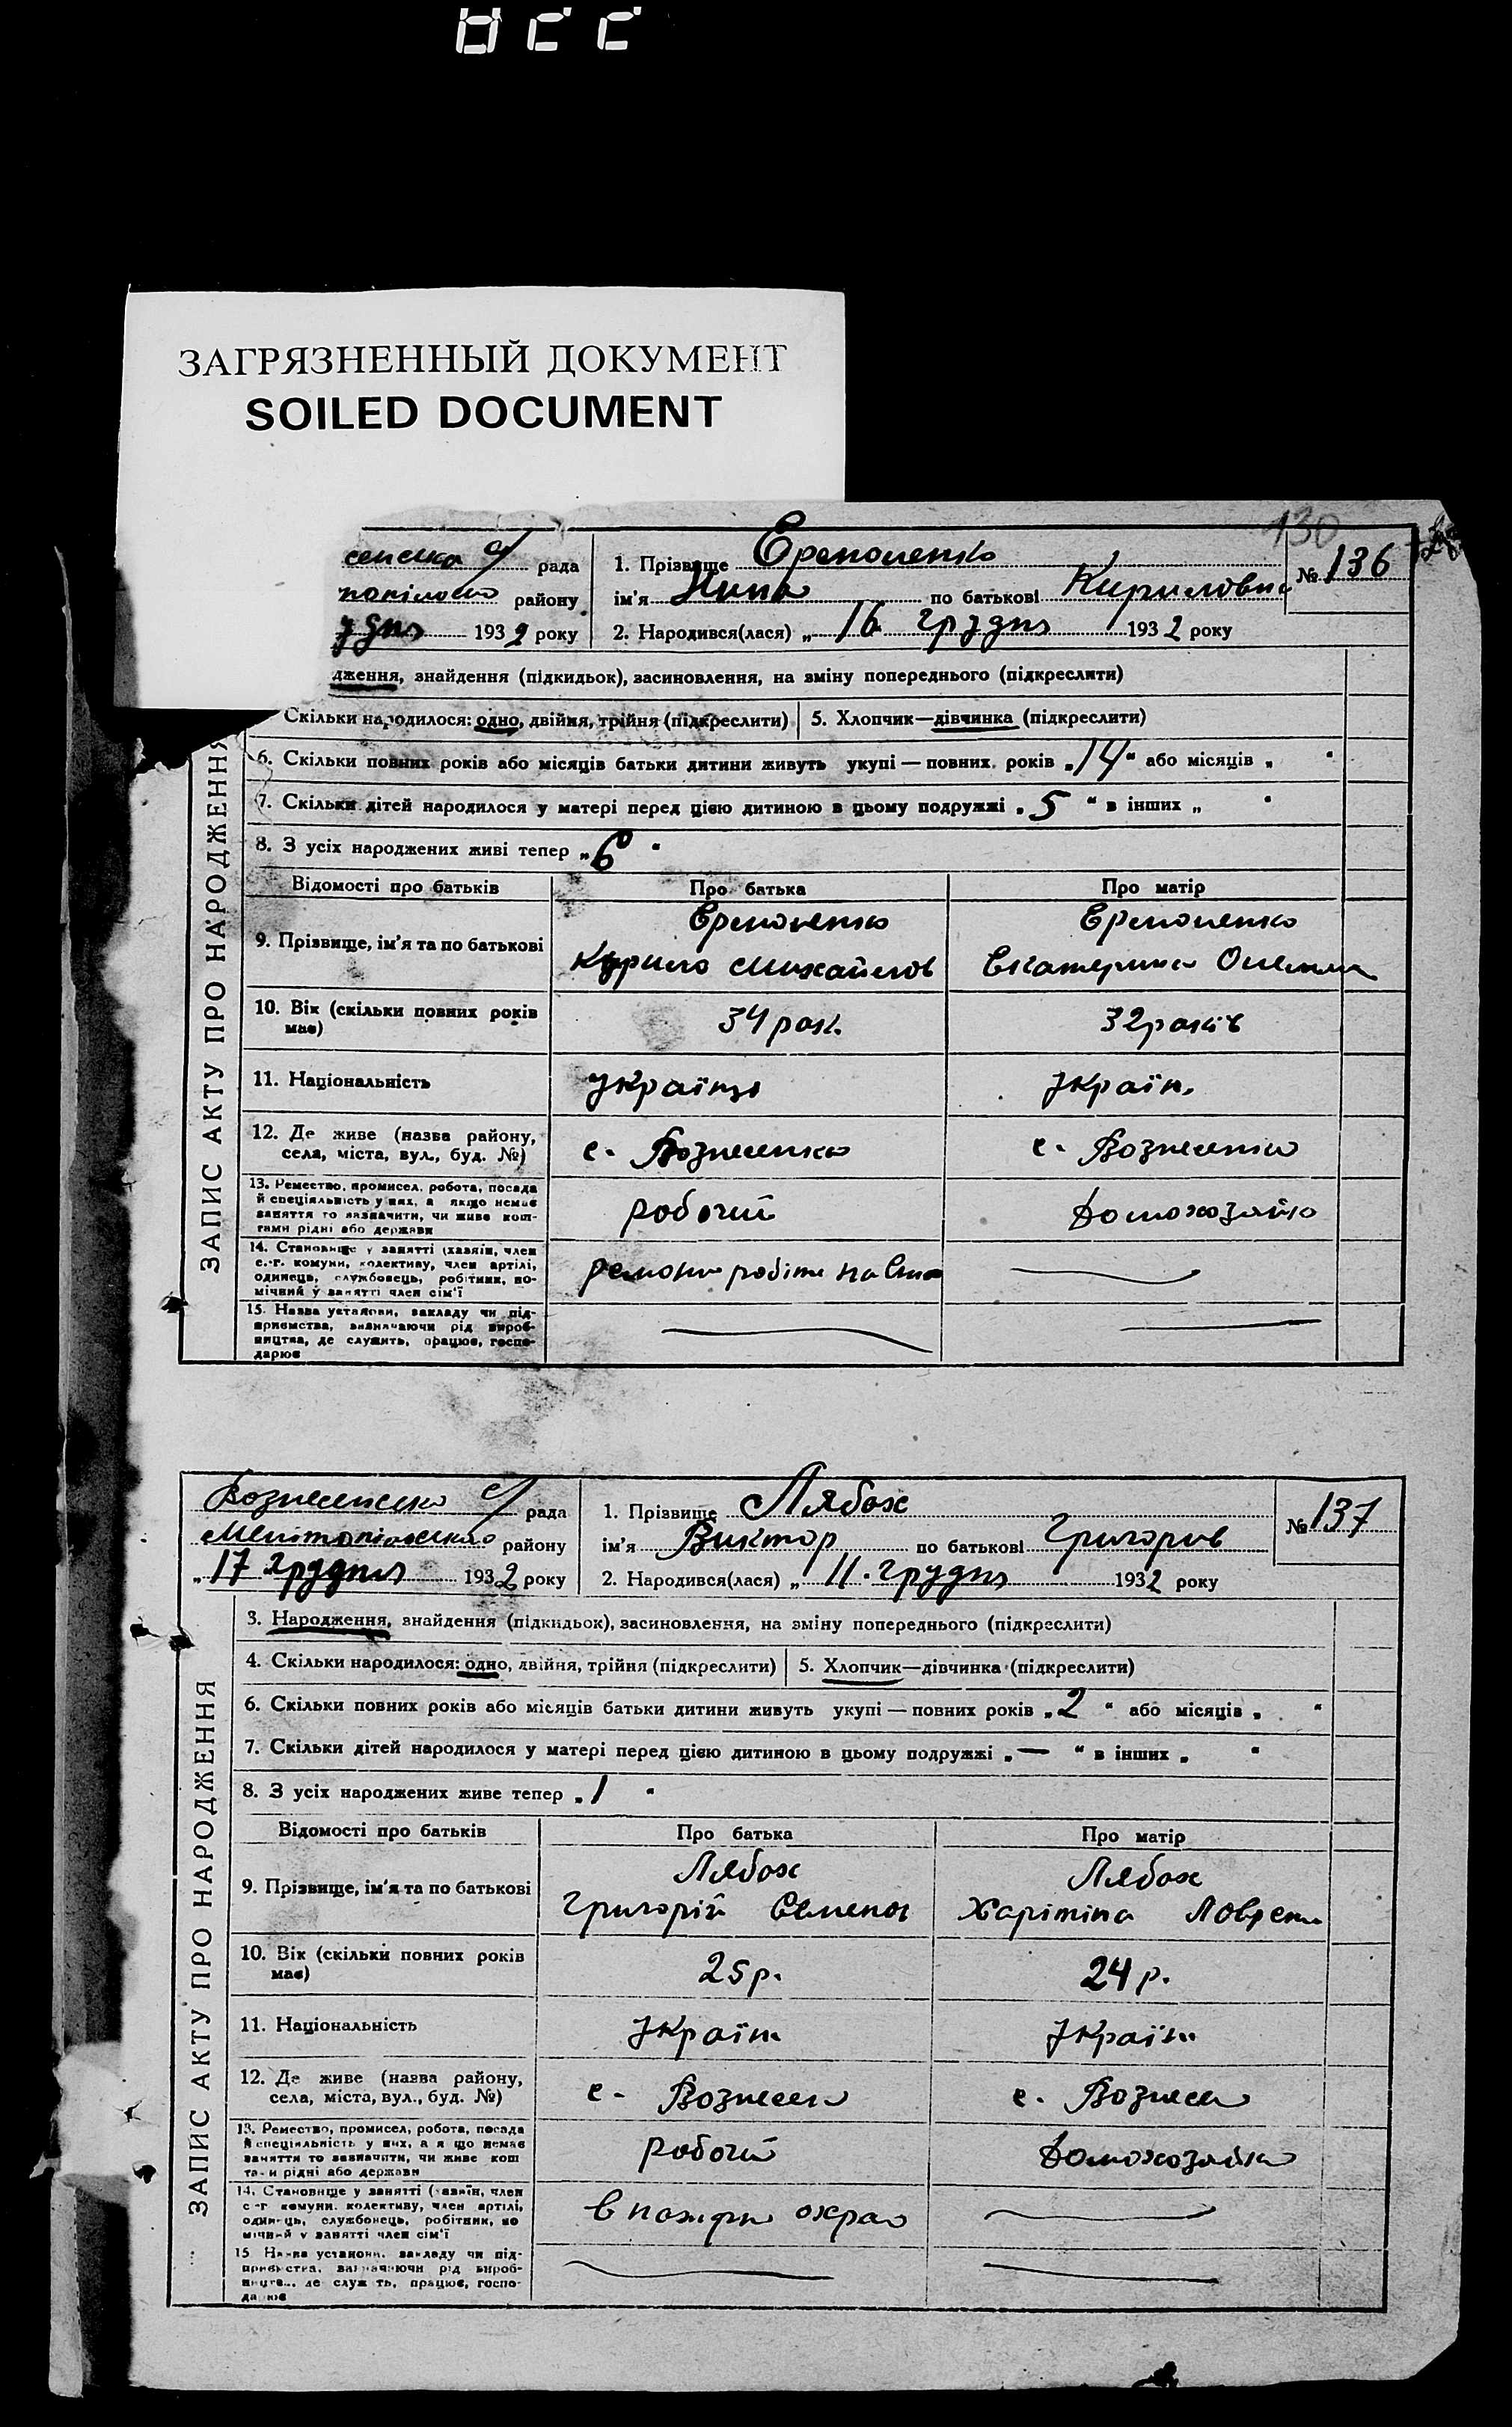 ЗАГРЯЗНЕННЫЙ ДОКУМЕНТ
SOILED DOCUMENT
130
сенська с/ рада
1. Прізвище
№ 136
району
ім'я Нина по батькові Кириловна
193 2 року
2. Народився(лася) „ 16 грудня 193 2 року
дження, знайдення (підкидьок), засиновлення, на зміну попереднього (підкреслити)
Скільки народилося: одно, двійня, трійня (підкреслити)
5. Хлопчик—дівчинка (підкреслити)
6. Скільки повних років або місяців батьки дитини живуть укупі — повних років „ 14 “ або місяців „ “
7. Скільки дітей народилося у матері перед цією дитиною в цьому подружжі „ 5 “ в інших „ “
8. З усіх народжених живі тепер „ 6 “
ЗАПИС АКТУ ПРО НАРОДЖЕННЯ
Відомості про батьків
Про батька
Про матір
9. Прізвище, ім'я та по батькові
Кирило Михайлов
Екатерина
10. Вік (скільки повних років
має)
34 рок.
32 років
11. Національність
Україн.
12. Де живе (назва району,
села, міста, вул., буд. №)
с. Вознесенка
с. Вознесенка
13. Ремество, промисел, робота, посада
й спеціяльність у них, а якщо немає
заняття то зазначити, чи живе кош-
тами рідні або держави
робочий
Домохозяйка
14. Становище у занятті (хазяїн, член
с.-г. комуни, колективу, член артілі,
одинець, службовець, робітник, по-
мічний у занятті член сім'ї
15. Назва установи, закладу чи під-
приємства, визначаючи рід вироб-
ництва, де служить, працює, госпо-
дарює
Вознесенська с/ рада
1. Прізвище Лябох
№ 137
Мелітопільського району
ім'я Виктор по батькові Григоров
„ 17 грудня 193 2 року
2. Народився(лася) „ 11. грудня 193 2 року
3. Народження, знайдення (підкидьок), засиновлення, на зміну попереднього (підкреслити)
4. Скільки народилося: одно, двійня, трійня (підкреслити)
5. Хлопчик—дівчинка (підкреслити)
6. Скільки повних років або місяців батьки дитини живуть укупі — повних років „ 2 “ або місяців „ “
7. Скільки дітей народилося у матері перед цією дитиною в цьому подружжі „ — “ в інших „ “
8. З усіх народжених живе тепер „ 1 “
ЗАПИС АКТУ ПРО НАРОДЖЕННЯ
Відомості про батьків
Про батька
Про матір
9. Прізвище, ім'я та по батькові
Лябох
Григорій Семенов
Лябох
Харітіна Лаврен
10. Вік (скільки повних років
має)
25 р.
24 р.
11. Національність
Україн
Україн
12. Де живе (назва району,
села, міста, вул., буд. №)
с. Вознесен
с. Вознесен
13. Ремество, промисел, робота, посада
й спеціяльність у них, а якщо немає
заняття то зазначити, чи живе кош
тами рідні або держави
робочий
Домохозяйка
14. Становище у занятті (хазяїн, член
с-г комуни, колективу, член артілі,
одинець, службовець, робітник, по
мічний у занятті член сім'ї
15 Назва установи, закладу чи під-
приємства, визначаючи рід вироб-
ництва, де служить, працює, госпо-
дарює